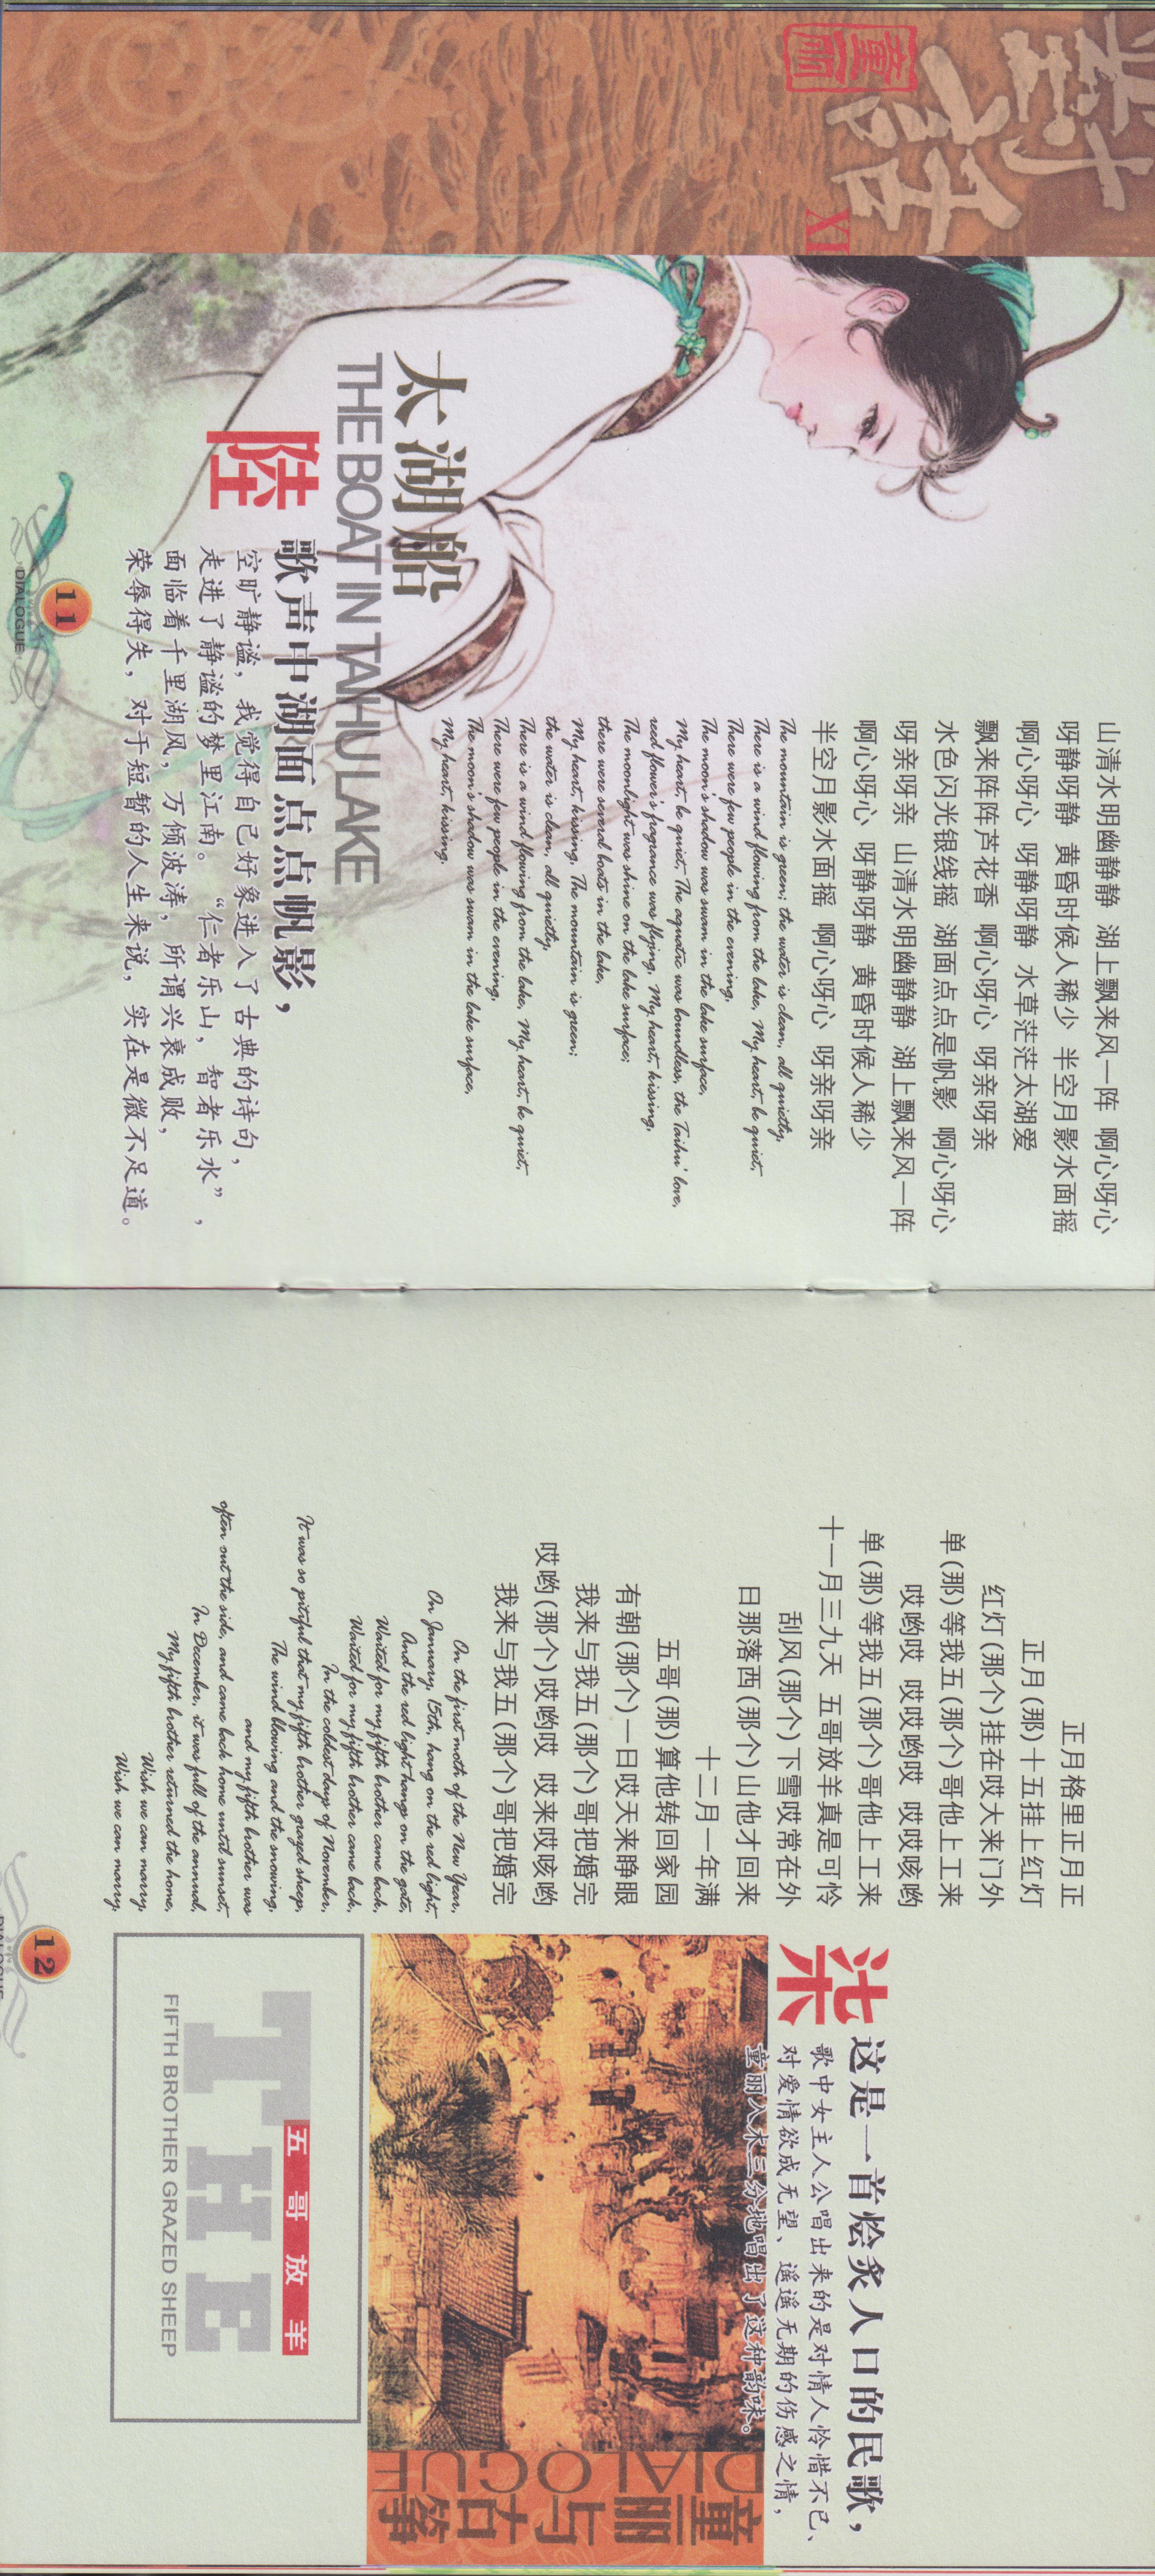 对话
童丽
XI
山清水明幽静静 湖上飘来风一阵 啊心呀心
呀静呀静 黄昏时候人稀少 半空月影水面摇
啊心呀心 呀静呀静 水草茫茫太湖爱
飘来阵阵芦花香 啊心呀心 呀亲呀亲
水色闪光银线摇 湖面点点是帆影 啊心呀心
呀亲呀亲 山清水明幽静静 湖上飘来风一阵
啊心呀心 呀静呀静 黄昏时候人稀少
半空月影水面摇 啊心呀心 呀亲呀亲
The mountain is green; the water is clean, all quietly,
There is a wind flowing from the lake, My heart, be quiet,
There were few people in the evening,
The moon's shadow was swam in the lake surface,
My heart, be quiet, The aquatic was boundless, the Taihu' love,
reed flower's fragrance was flying, My heart, kissing,
The moonlight was shine on the lake surface;
there were several boats in the lake,
My heart, kissing, The mountain is green;
the water is clean, all quietly,
There is a wind flowing from the lake, My heart, be quiet,
There were few people in the evening,
The moon's shadow was swam in the lake surface,
My heart, kissing.
太湖船
THE BOAT IN TAIHU LAKE
陆
歌声中湖面点点帆影，
空旷静谧，我觉得自己好象进入了古典的诗句，
走进了静谧的梦里江南。“仁者乐山，智者乐水”，
面临着千里湖风，万倾波涛，所谓兴衰成败，
荣辱得失，对于短暂的人生来说，实在是微不足道。
11
DIALOGUE
正月格里正月正
正月(那)十五挂上红灯
红灯(那个)挂在哎大来门外
单(那)等我五(那个)哥他上工来
哎哟哎 哎哎哟哎 哎哎咳哟
单(那)等我五(那个)哥他上工来
十一月三九天 五哥放羊真是可怜
刮风(那个)下雪哎常在外
日那落西(那个)山他才回来
十二月一年满
五哥(那)算他转回家园
有朝(那个)一日哎天来睁眼
我来与我五(那个)哥把婚完
哎哟(那个)哎哟哎 哎来哎咳哟
我来与我五(那个)哥把婚完
On the first moth of the New Year,
On January 15th, hang on the red light,
And the red light hangs on the gate,
Waited for my fifth brother came back,
Waited for my fifth brother came back,
In the coldest days of November,
It was so pitiful that my fifth brother grazed sheep,
The wind blowing and the snowing,
and my fifth brother was
often out the side, and came back home until sunset,
In December, it was full of the annual,
My fifth brother returned the home,
Wish we can marry,
Wish we can marry.
柒
这是一首烩炙人口的民歌，
歌中女主人公唱出来的是对情人怜惜不已、
对爱情欲成无望、遥遥无期的伤感之情，
童丽入木三分地唱出了这种韵味。
DIALOGUE
童丽与古筝
五哥放羊
THE
FIFTH BROTHER GRAZED SHEEP
12
DIALOGUE